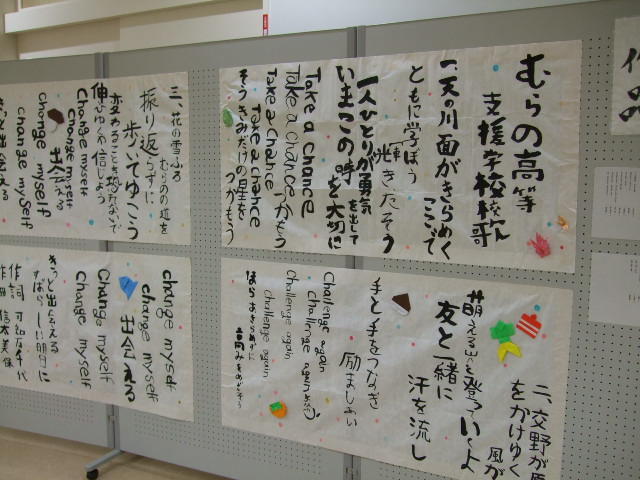 むらの高等
支援学校校歌
一、天の川面がきらめく
ここで
ともに学ぼう
輝きたそう
一人ひとりが勇気
を出して
いまこの時を大切に
Take a chance
Take a chance つかもう
Take a chance
Take a chance
そうきみだけの星を
つかもう
二、交野が原
をかけゆく
風が
萌える山を登っていくよ
友と一緒に
汗を流し
手と手をつなぎ
励ましあい
Challenge again
Challenge again
Challenge again
Challenge again
三、花の雪ふる
むらのの道を
振り返らずに
歩いてゆこう
変わることを恐れないで
伸びゆく力信じよう
Change myself
change myself
出会える
change myself
change myself
きっと出会える
change myself
change myself
出会える
Change myself
change myself
きっと出会える
すばらしい明日に
作詞
作曲
作品